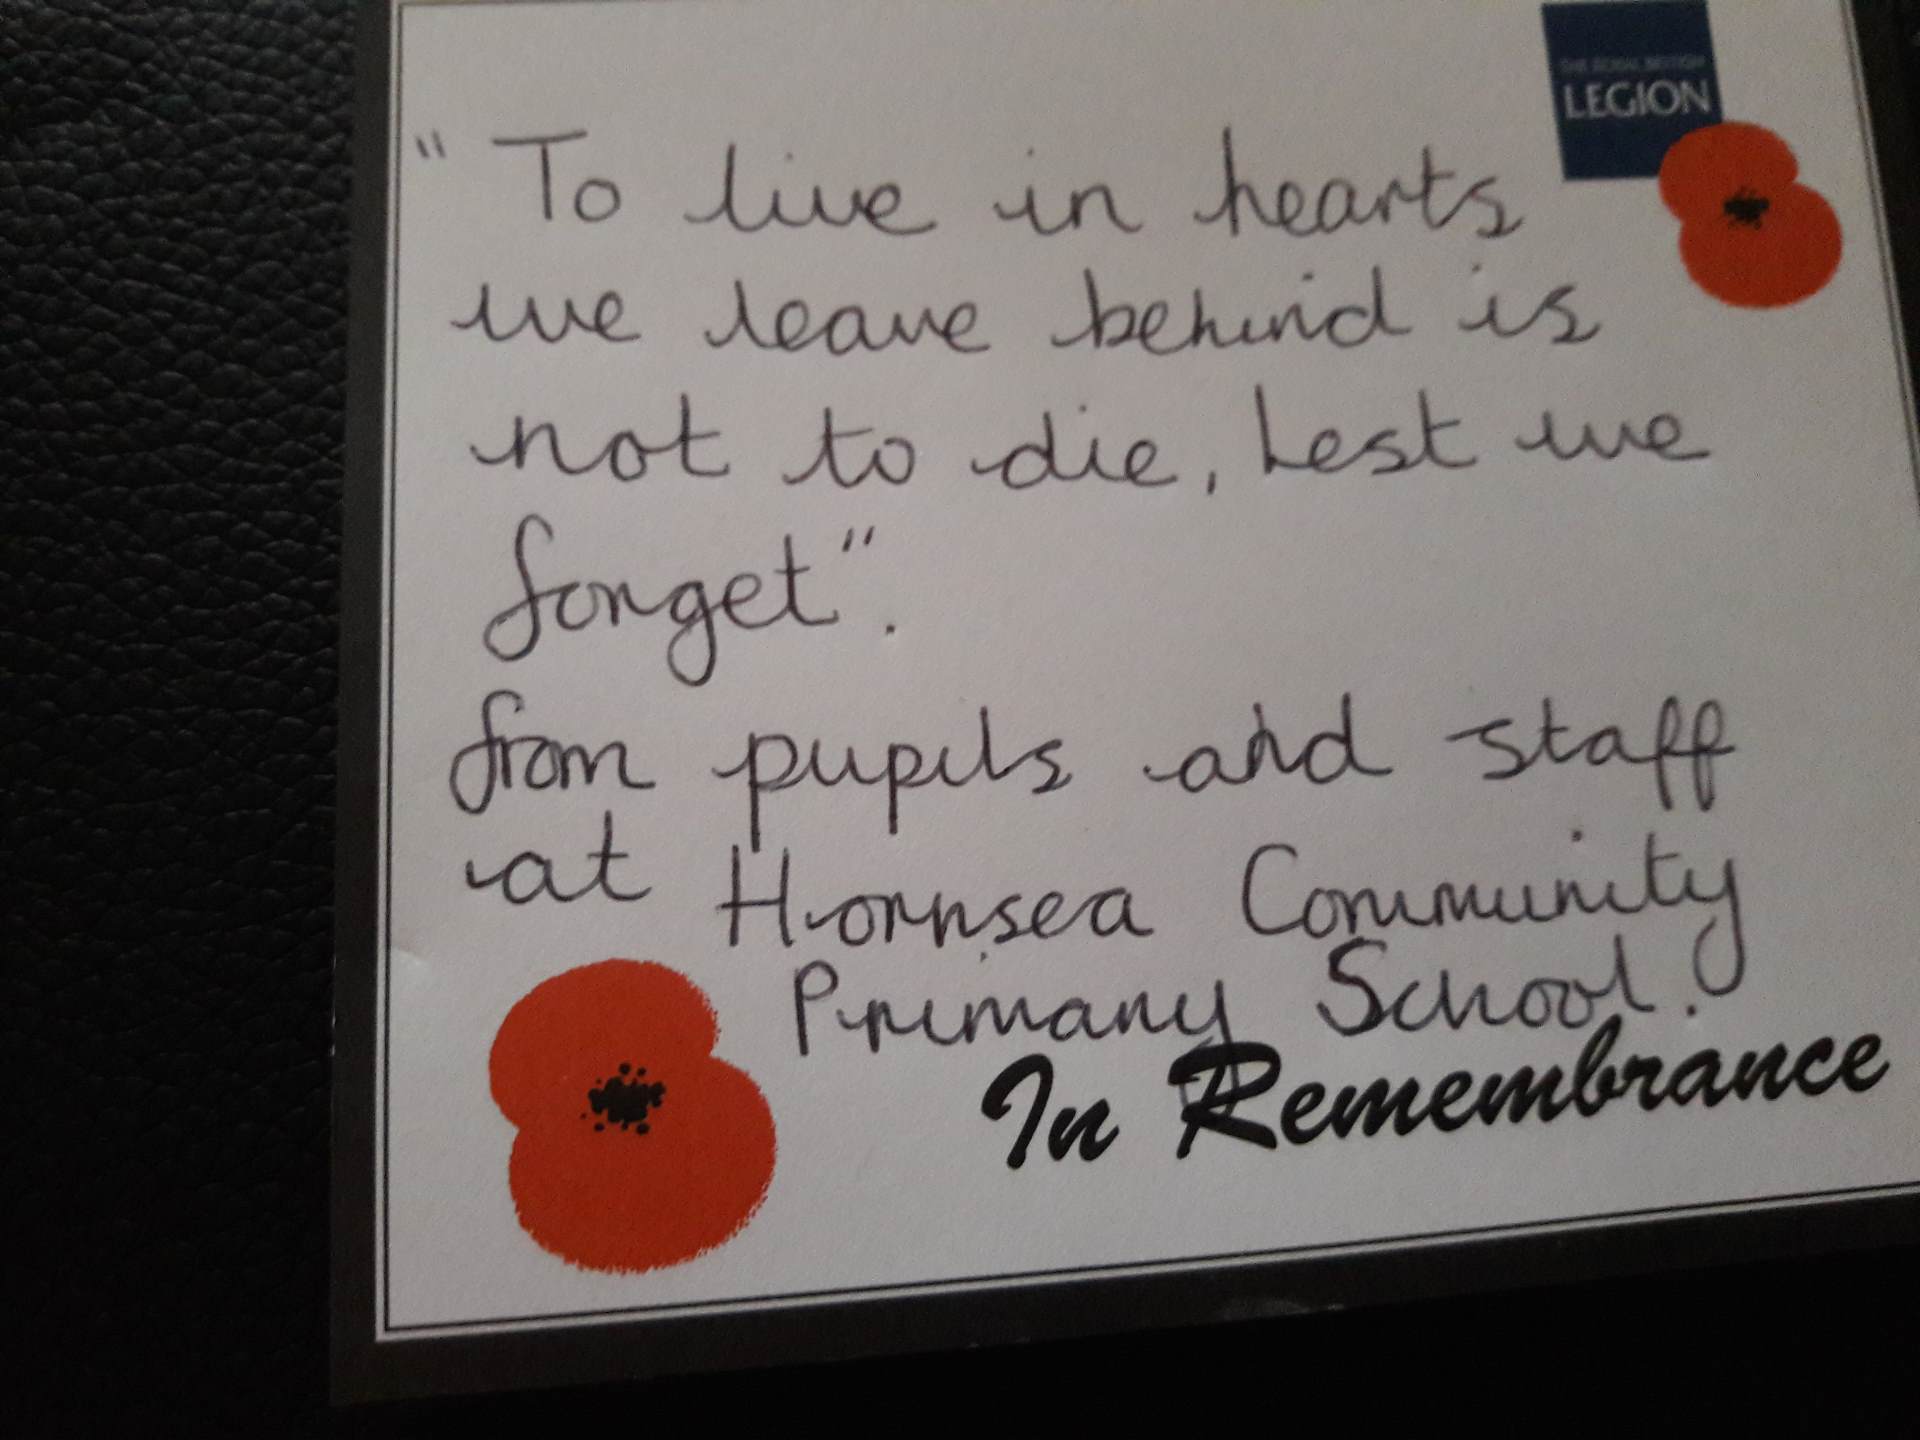 THE ROYAL BRITISH
LEGION
" To live in hearts
we leave behind is
not to die, Lest we
forget".
from pupils and staff
at Hornsea Community
Primary School.
In Remembrance